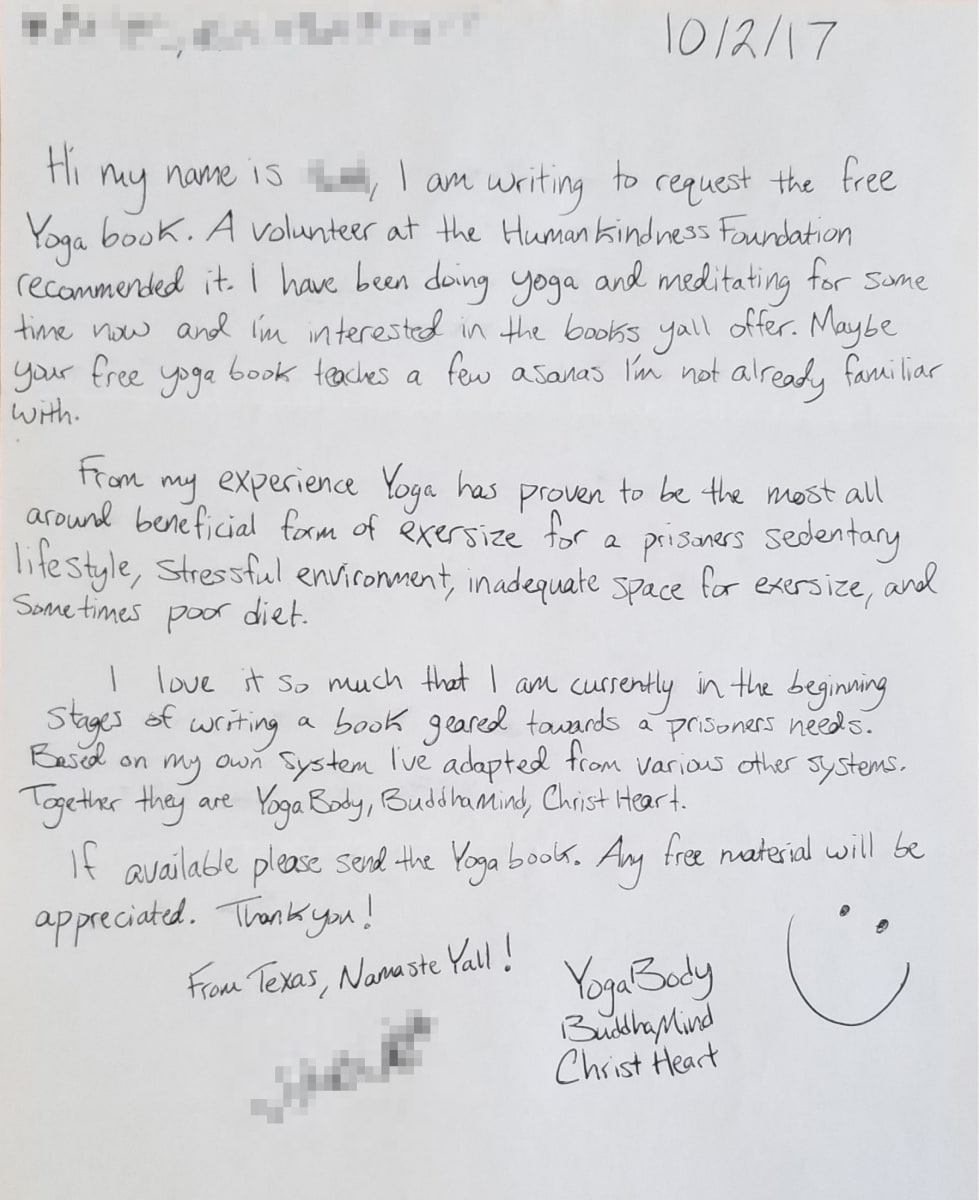 10/2/17
Hi my name is , I am writing to request the free
Yoga book. A volunteer at the Human Kindness Foundation
recommended it. I have been doing yoga and meditating for some
time now and I'm interested in the books yall offer. Maybe
your free yoga book teaches a few asanas I'm not already familiar
with.
From my experience Yoga has proven to be the most all
around beneficial form of exersize for a prisoners sedentary
lifestyle, stressful environment, inadequate space for exersize, and
sometimes poor diet.
I love it so much that I am currently in the beginning
stages of writing a book geared towards a prisoners needs.
Based on my own system I've adapted from various other systems.
Together they are Yoga Body, Buddha Mind, Christ Heart.
If available please send the Yoga book. Any free material will be
appreciated. Thank you!
From Texas, Namaste Yall!
Yoga Body
Buddha Mind
Christ Heart